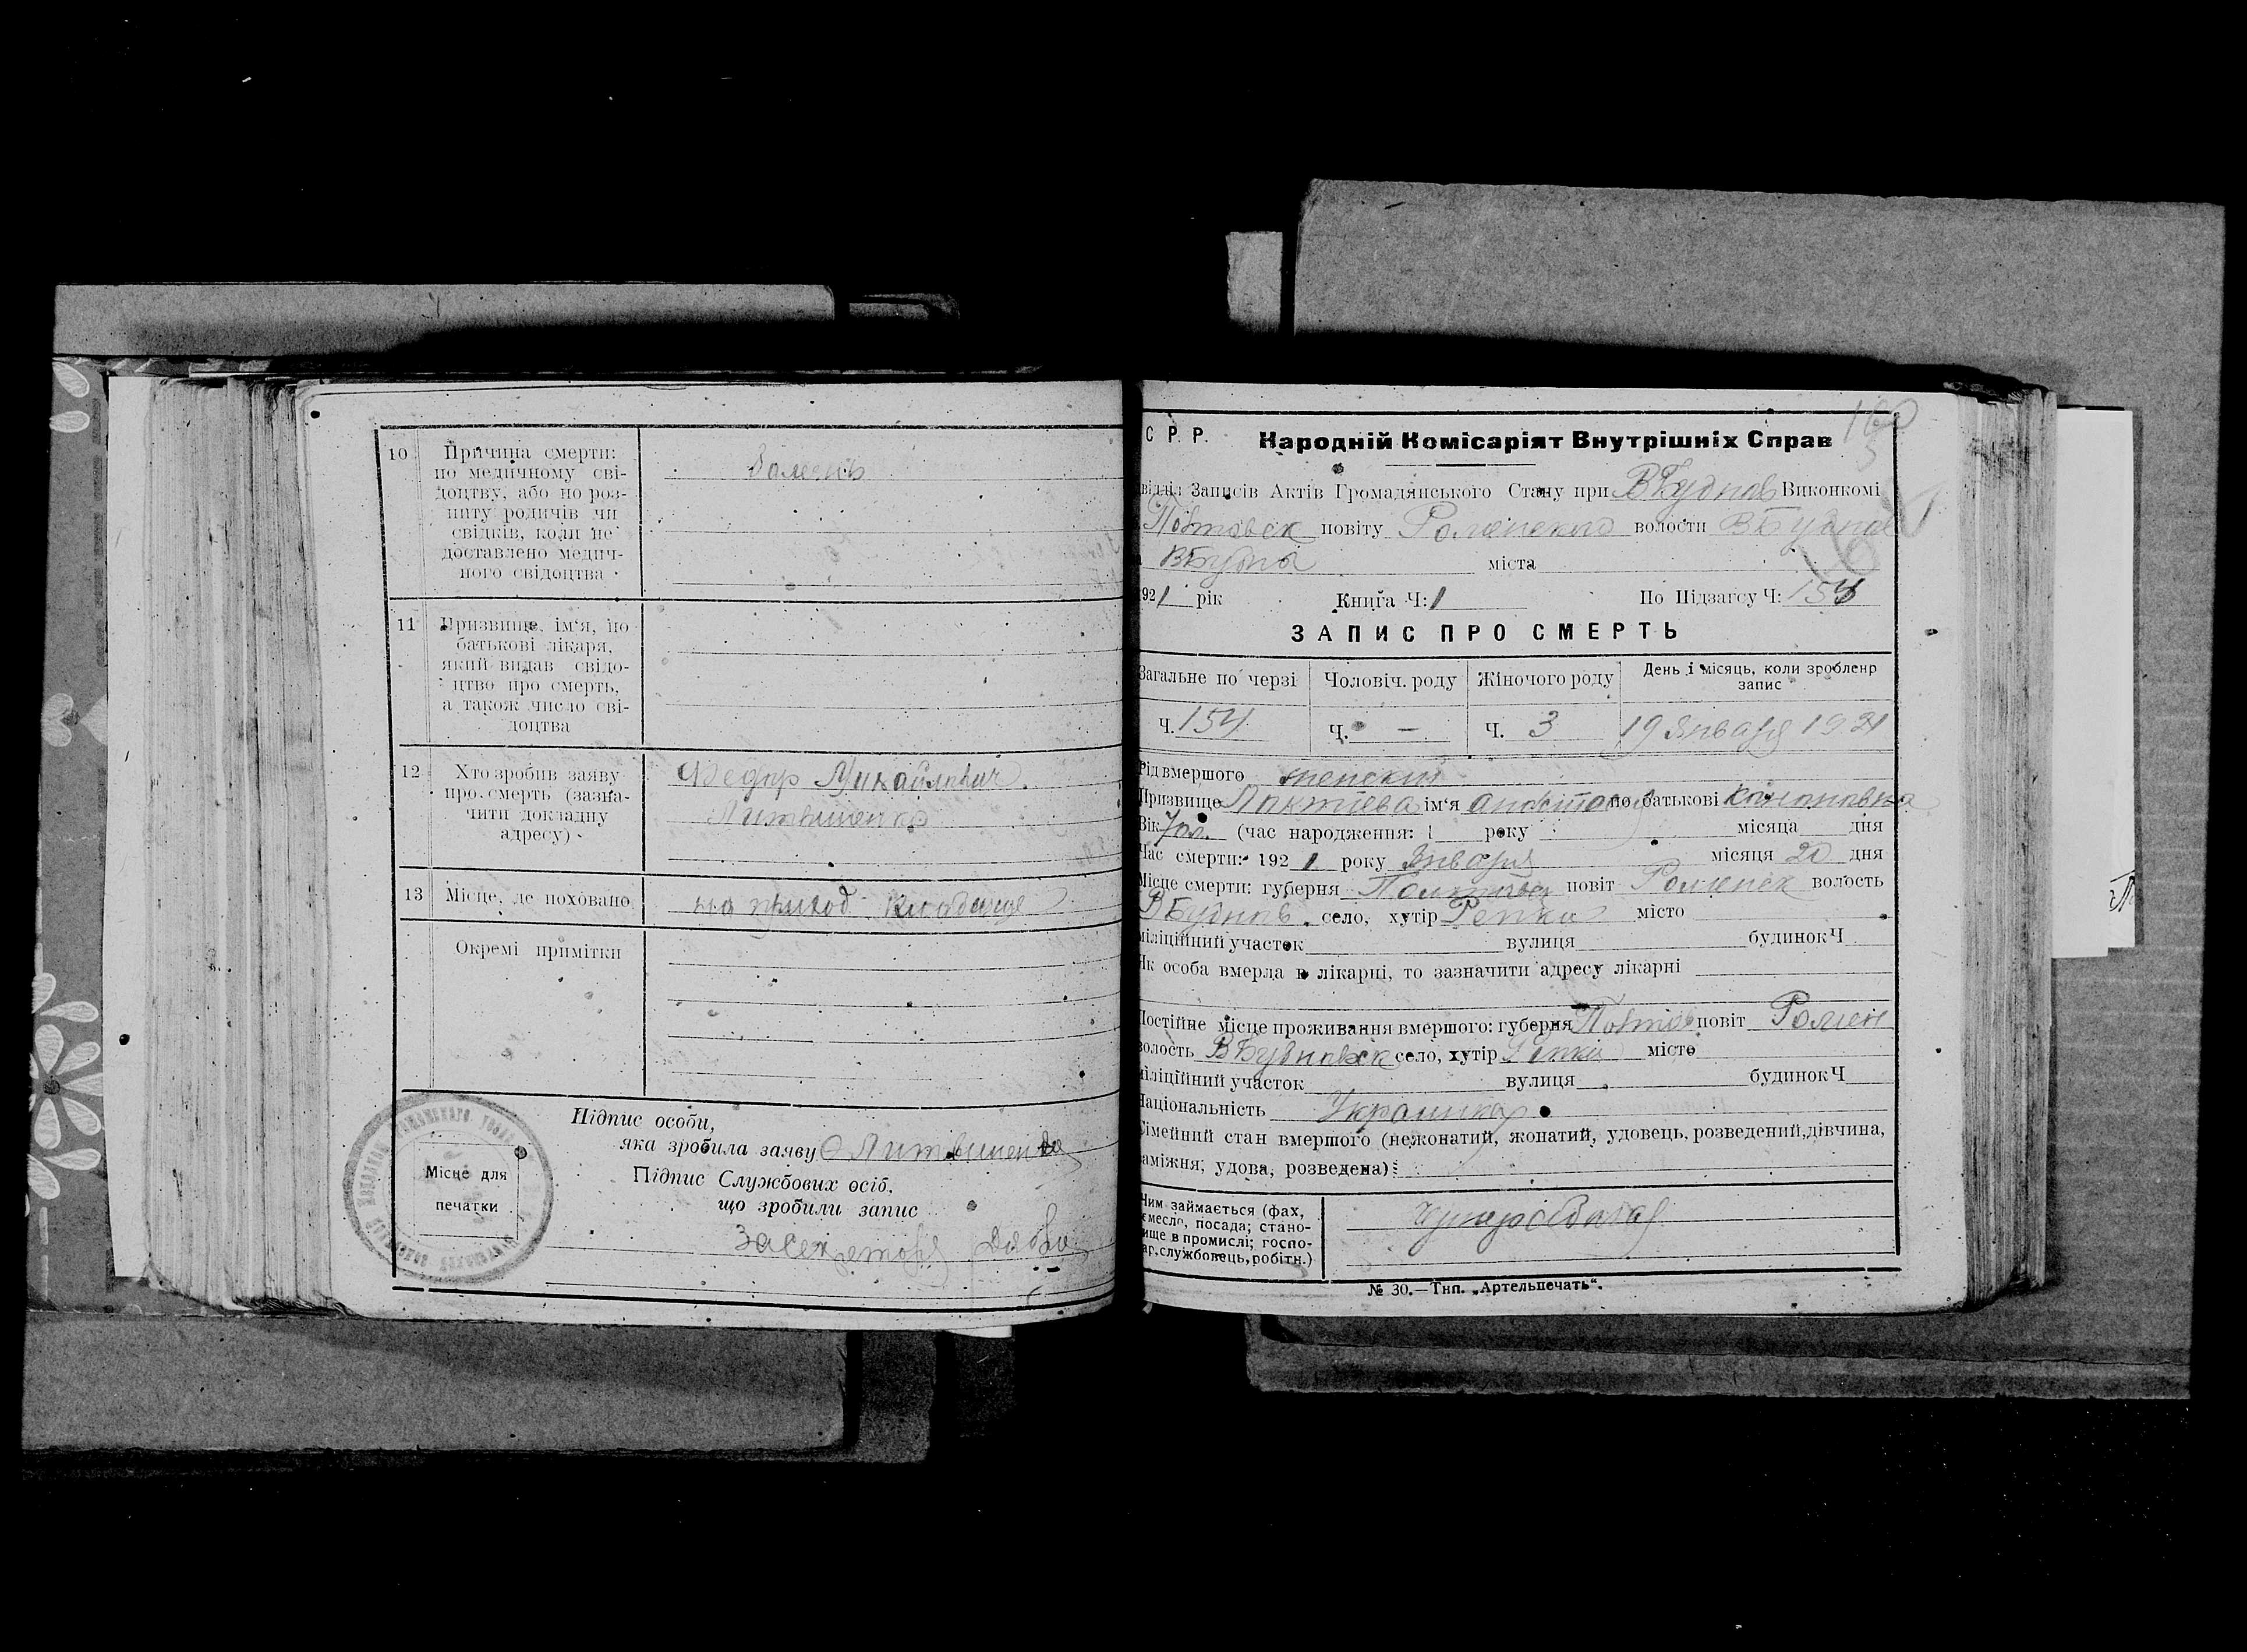 10
Причина смерти:
по медичному сві-
доцтву, або по роз-
питу родичів чи
свідків, коли не
доставлено медич-
ного свідоцтва
11
Призвище, ім'я, по
батькові лікаря,
який видав свідо-
цтво про смерть,
а також число сві-
доцтва
12
Хто зробив заяву
про смерть (зазна-
чити докладну
адресу)
Федир Михайлович
Литвиненко
13
Місце, де поховано
на приход кладбище
Окремі примітки
Підпис особи,
яка зробила заяву Литвиненко
Підпис Службових осіб,
що зробили запис
Місце для
печатки
160
С. Р. Р. Народній Комісаріят Внутрішніх Справ
відділ Записів Актів Громадянського Стану при ВБудков Виконкомі
повіту Роменского волости
міста
921 рік Книга Ч: 1 По Підзагсу Ч: 154
ЗАПИС ПРО СМЕРТЬ
Загальне по черзі Чоловіч. роду Жіночого роду День і місяць, коли зроблено
запис
Ч. 154 Ч. — Ч. 3 19 Января 1921
Рід вмершого женский
Призвище Лактева ім'я по батькові Кононовна
Вік (час народження: 1 року місяця дня
Час смерти: 1921 року Января місяця 20 дня
Місце смерти: губерня Полтава повіт Роменск волость
село, хутір Репки місто
міліційний участок вулиця будинок Ч
Як особа вмерла в лікарні, то зазначити адресу лікарні
Постійне місце проживання вмершого: губерня Полтав повіт Ромен
волость село, хутір Репки місто
міліційний участок вулиця будинок Ч
Національність Украинка
Сімейний стан вмершого (нежонатий, жонатий, удовець, розведений, дівчина,
заміжня, удова, розведена):
Чим займається (фах,
ремесло, посада; стано-
вище в промислі; госпо-
дар, службовець, робітн.)
№ 30.—Тип. „Артельпечать“.